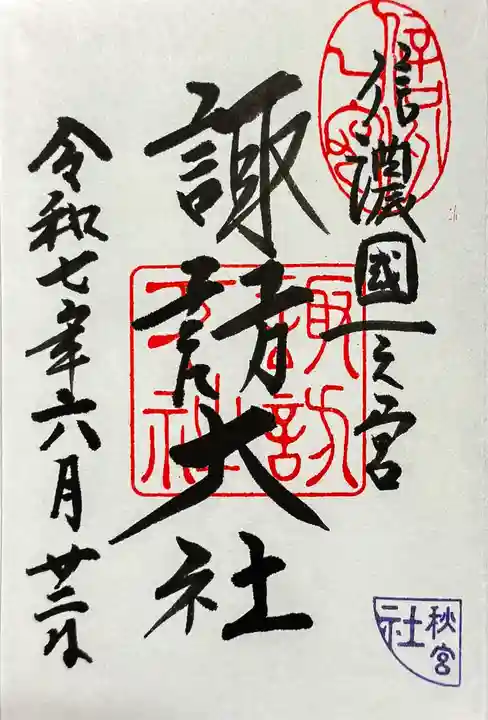 信濃國一之宮
諏訪大社
令和七年六月廿二日
諏訪大社
秋宮社